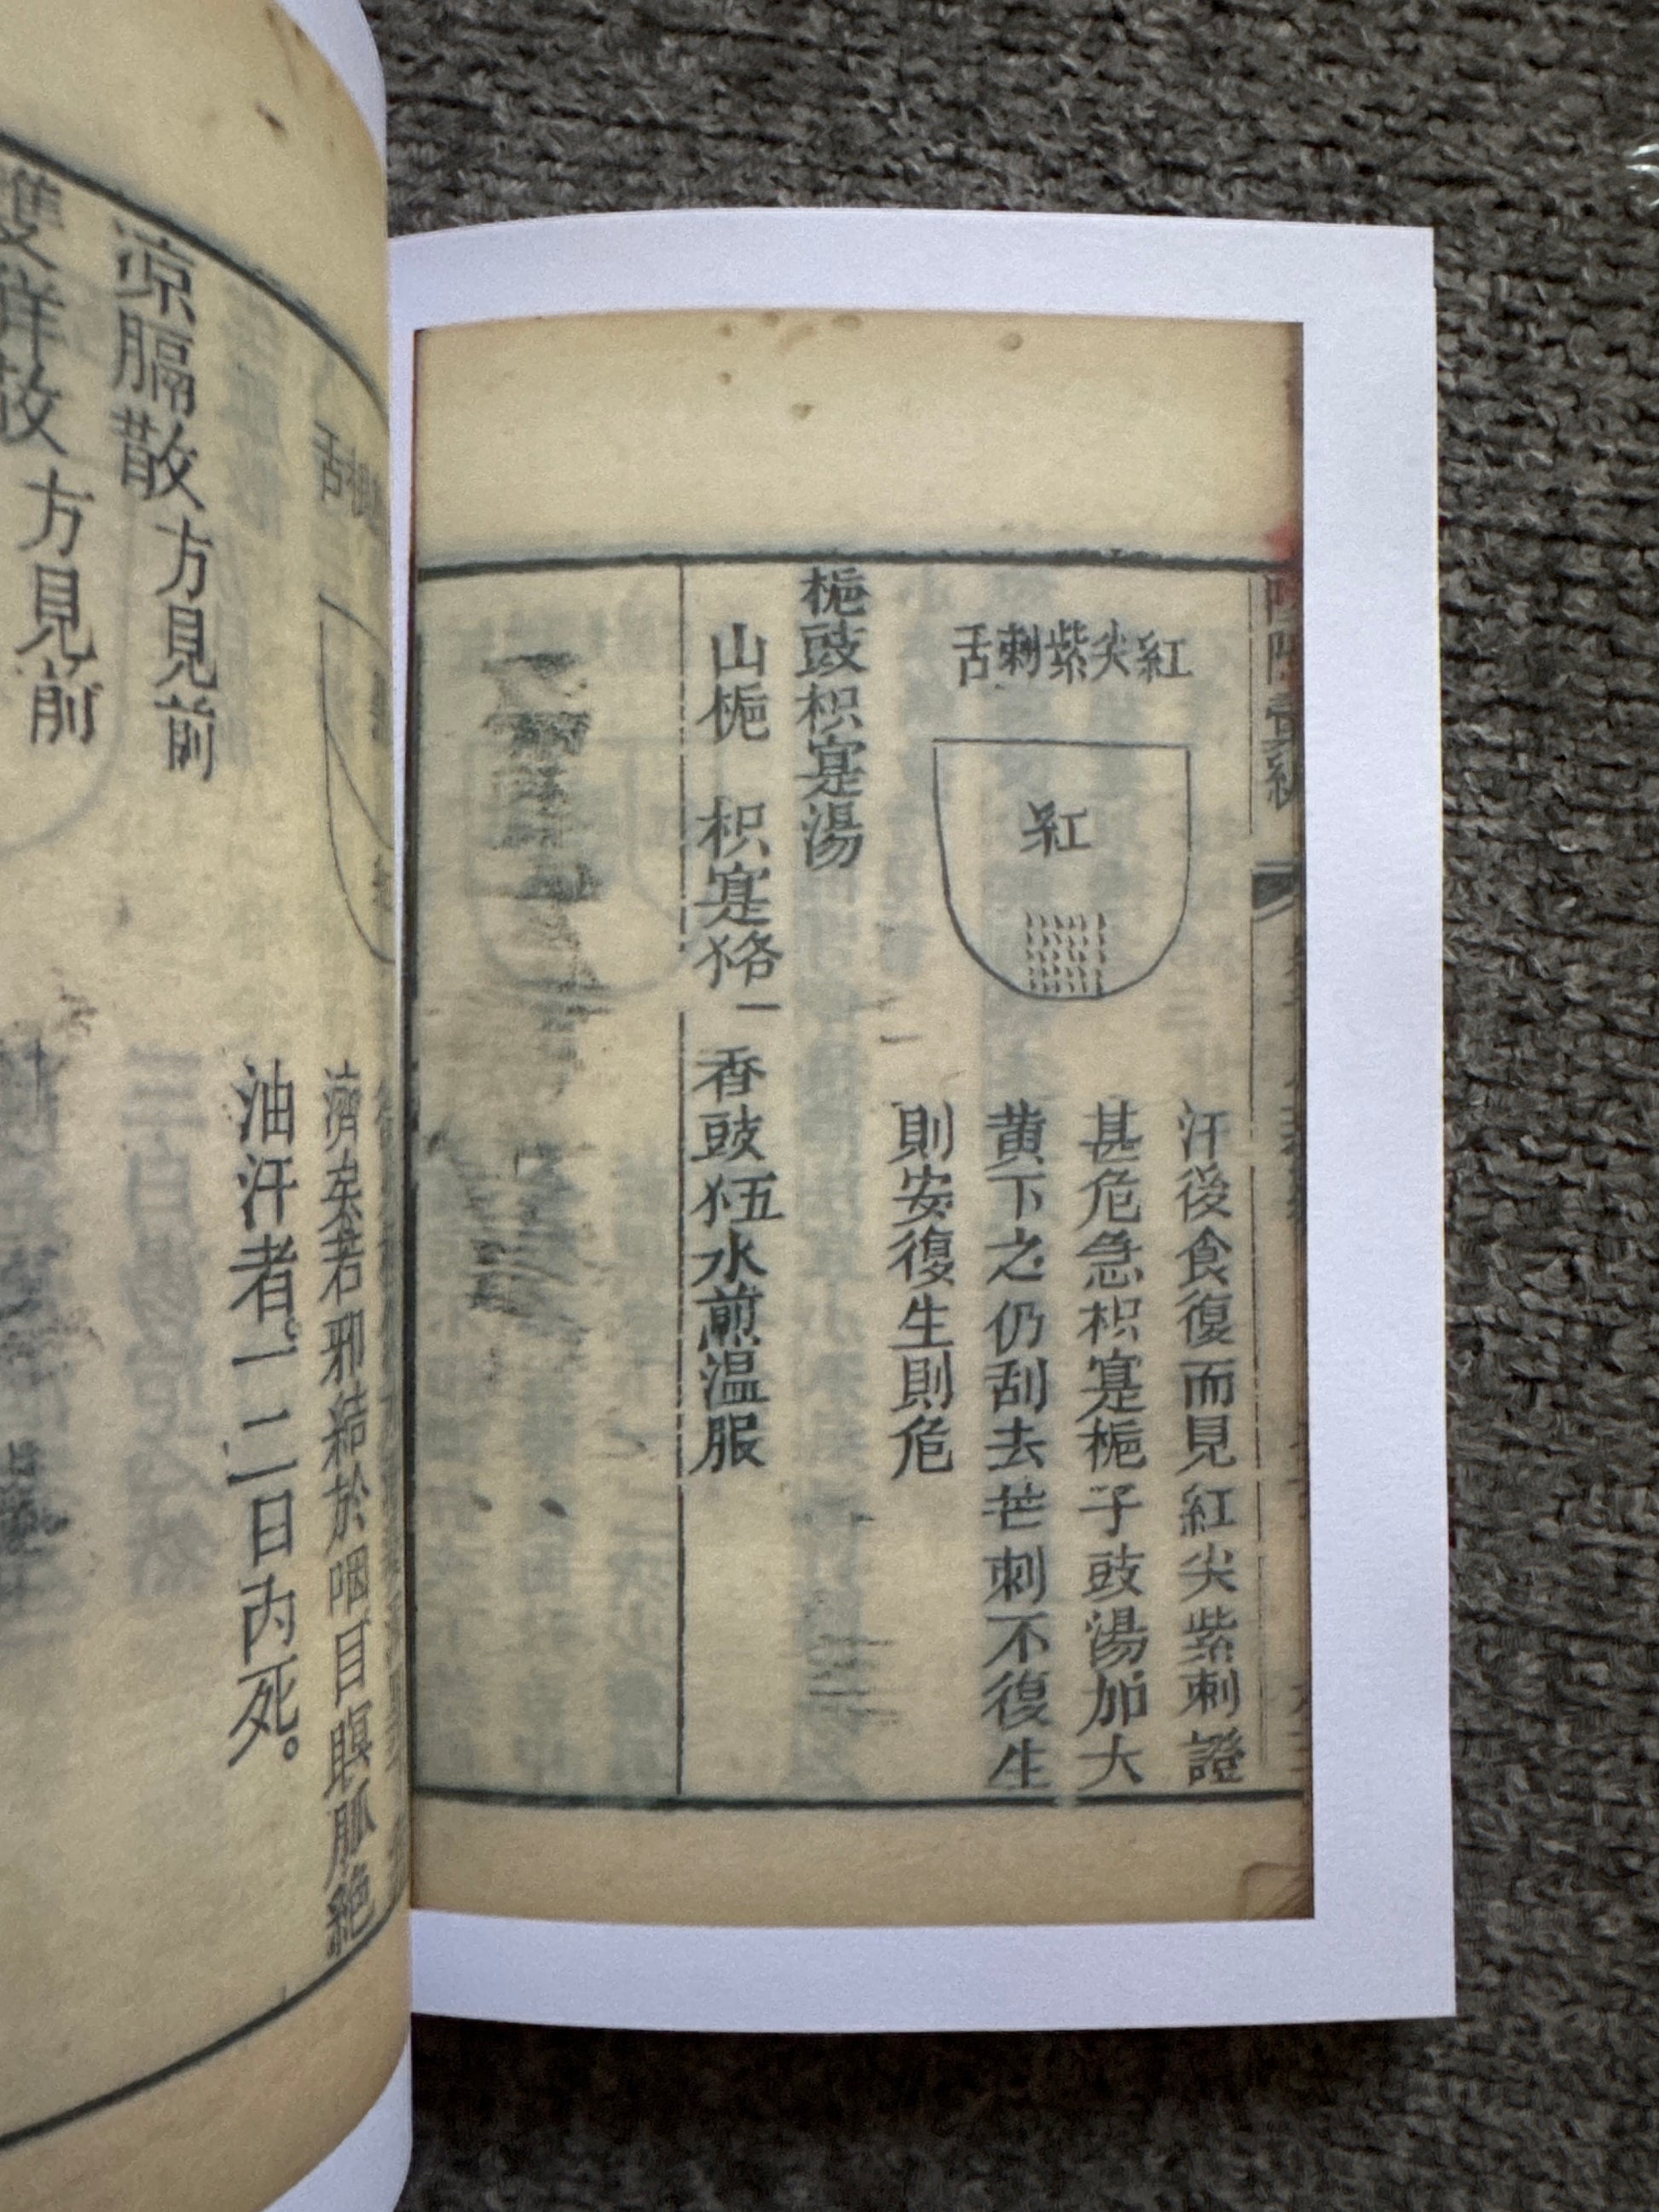 紅尖紫刺舌
紅
汗後食復而見紅尖紫刺證
甚危急枳寔梔子豉湯加大
黄下之仍刮去芒刺不復生
則安復生則危
梔豉枳寔湯
山梔 枳寔各一 香豉五水煎温服
濟矣若邪結於咽目瞑脈絶
油汗者。一二日內死。
凉膈散方見前
雙觧散方見前